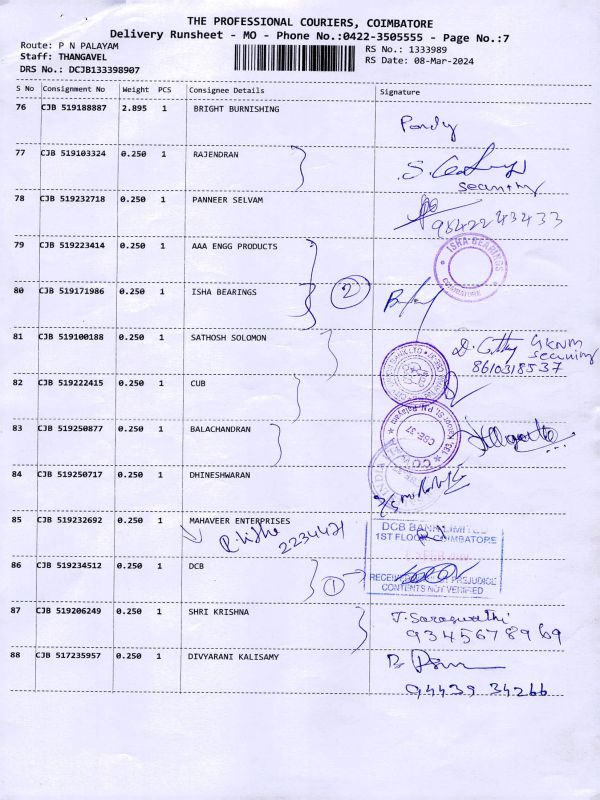 THE PROFESSIONAL COURIERS, COIMBATORE
Delivery Runsheet - MO - Phone No.:0422-3505555 - Page No.:7
Route: P N PALAYAM
RS No.: 1333989
Staff: THANGAVEL
RS Date: 08-Mar-2024
DRS No.: DCJB133398907
S No Consignment No Weight PCS Consignee Details Signature
76 CJB 519188887 2.895 1 BRIGHT BURNISHING
Pandy
77 CJB 519103324 0.250 1 RAJENDRAN
security
78 CJB 519232718 0.250 1 PANNEER SELVAM
9842243433
79 CJB 519223414 0.250 1 AAA ENGG PRODUCTS
ISHA BEARINGS
COIMBATORE
80 CJB 519171986 0.250 1 ISHA BEARINGS
2
81 CJB 519100188 0.250 1 SATHOSH SOLOMON
GKNM
security
8610318537
82 CJB 519222415 0.250 1 CUB
83 CJB 519250877 0.250 1 BALACHANDRAN
CBE-37
84 CJB 519250717 0.250 1 DHINESHWARAN
85 CJB 519232692 0.250 1 MAHAVEER ENTERPRISES
2234421
DCB BANK LIMITED
1ST FLOOR COIMBATORE
86 CJB 519234512 0.250 1 DCB
1
RECEIVED PREJUDICE
CONTENTS NOT VERIFIED
87 CJB 519206249 0.250 1 SHRI KRISHNA
J. Saraswathi
9345678969
88 CJB 517235957 0.250 1 DIVYARANI KALISAMY
94439 34266